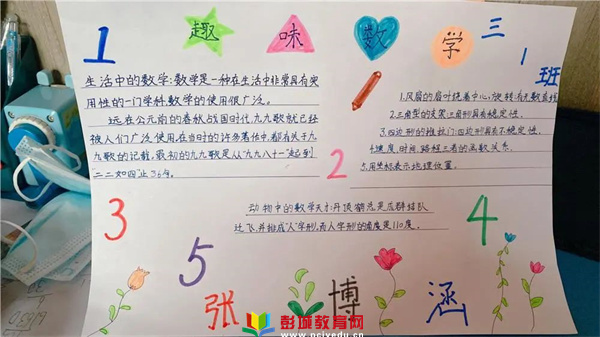 1 趣 味 数 学 三 1 班
生活中的数学:数学是一种在生活中非常具有实
用性的一门学科,数学的使用很广泛。
远在公元前的春秋战国时代,九九歌就已经
被人们广泛使用,在当时的许多著作中,都有关于九
九歌的记载。最初的九九歌是从"九九八十一"起到
二二如四止,36句。
1.风扇的扇叶绕着中心旋转:有无数直线
2.三角型的支架:三角形具有稳定性。
3.四边形的推拉门:四边形具有不稳定性。
4.速度,时间,路程三者的函数关系。
5.用坐标表示地理位置。
2
3
动物中的数学天才:丹顶鹤总是成群结队
迁飞,并排成"人"字形,而人字形的角度是110度。
4
5
张 博 涵
彭城教育网
www.pcjyw.com